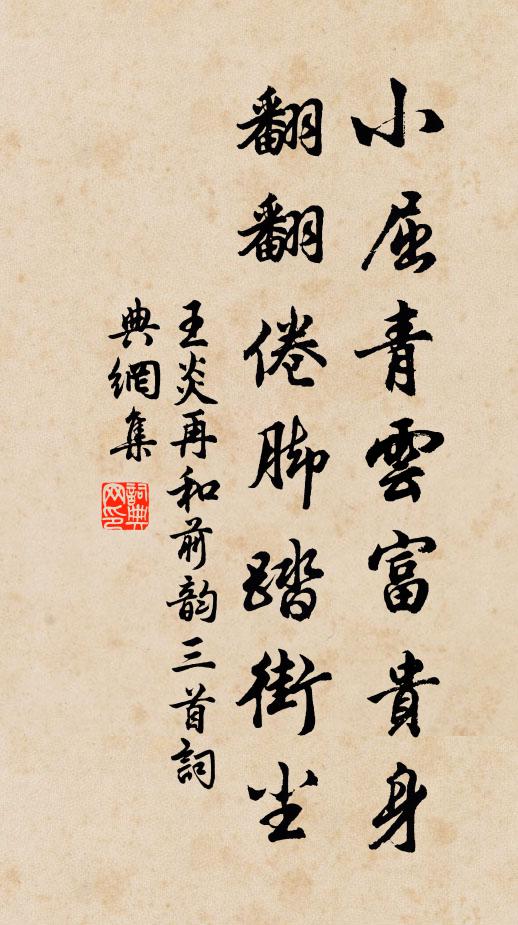 小屈青雲富貴身
翻翻倦脚踏街尘
王炎再和前韵三首詞
典網集
詞典
网印